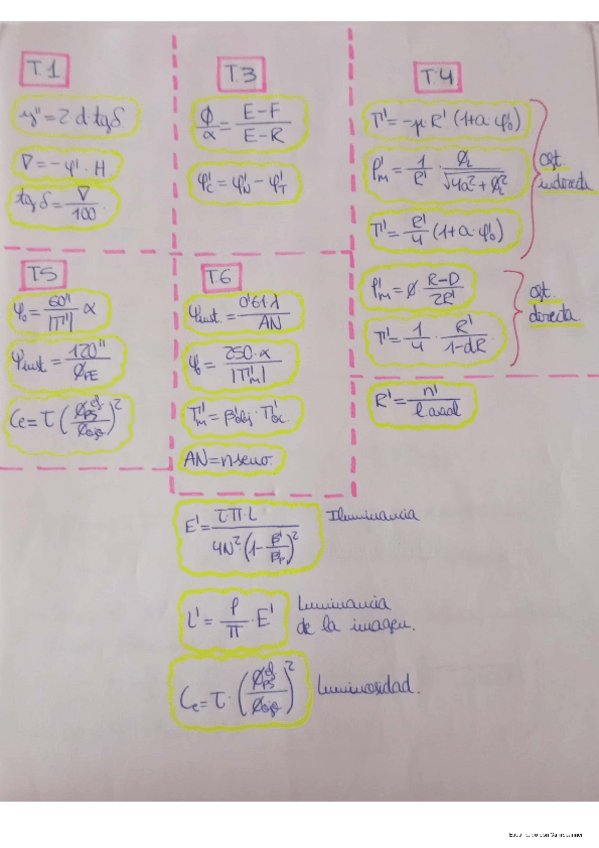 T.1
y'' = 2 d · tg δ
∇ = -φ' · H
tg δ = ∇/100
T.3
ϕ/α = E-F/E-R
φ'c = φ'N - φ'T
T.4
T' = -μ R' (1+a·φ'0)
ρ'm = 1/R' · Ø/√4a²+Ø²
T' = R'/4 (1+a·φ'0)
oft. indirecta
ρ'm = Ø R-D/2R'
T' = 1/4 · R'/1-dR
oft. directa
R' = n'/l axial
T5
φ0 = 60''/|T'| α
φinst = 120''/ØPE
Ce = τ (Øef PS/Øojo)²
T.6
φinst = 0'61·λ/AN
φ = 250·α/|T'm|
T'm = β'obj · T'oc
AN = n senσ.
E' = τ·π·L/4N²·(1-β'/βp)² Iluminancia
L' = ρ/π · E' Luminancia
de la imagen.
Ce = τ · (Øef PS/Øojo)² Luminosidad.